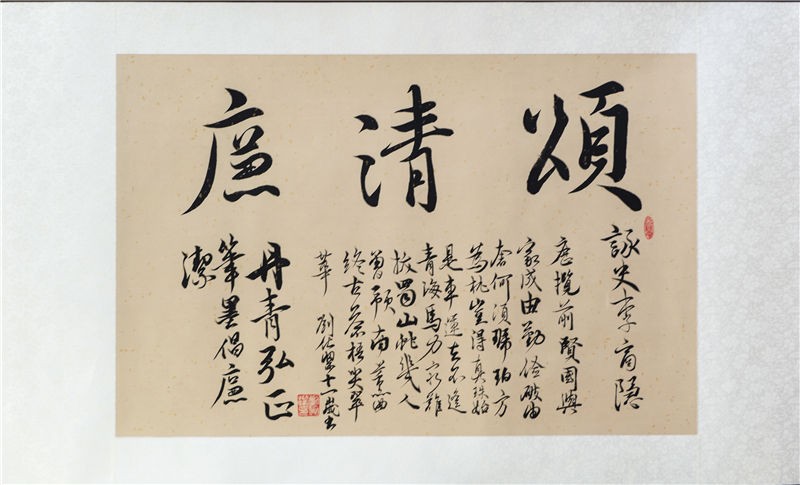 頌清廉
詠史李商隱
歷攬前賢國與
家成由勤儉破由
奢何須琥珀方
為枕豈得真珠始
是車運去不逢
青海馬力窮難
拔蜀山蛇幾人
曾預南薰曲
終古蒼梧哭翠
華
劉 十一歲書
丹青弘正
筆墨倡廉
潔